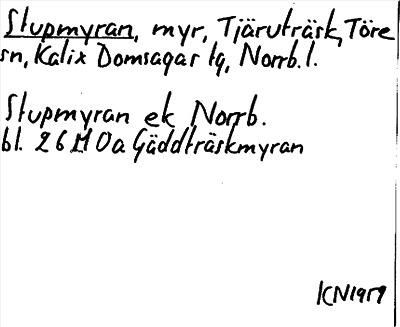 Stupmyran, myr, Tjäruträsk, Töre
sn, Kalix Domsagas tg, Norrb. l.
Stupmyran ek Norrb.
bl. 26 M 0a Gäddträskmyran
KN1959